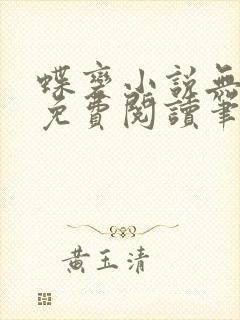 蝶變小說無
免費閱讀筆
黃玉清